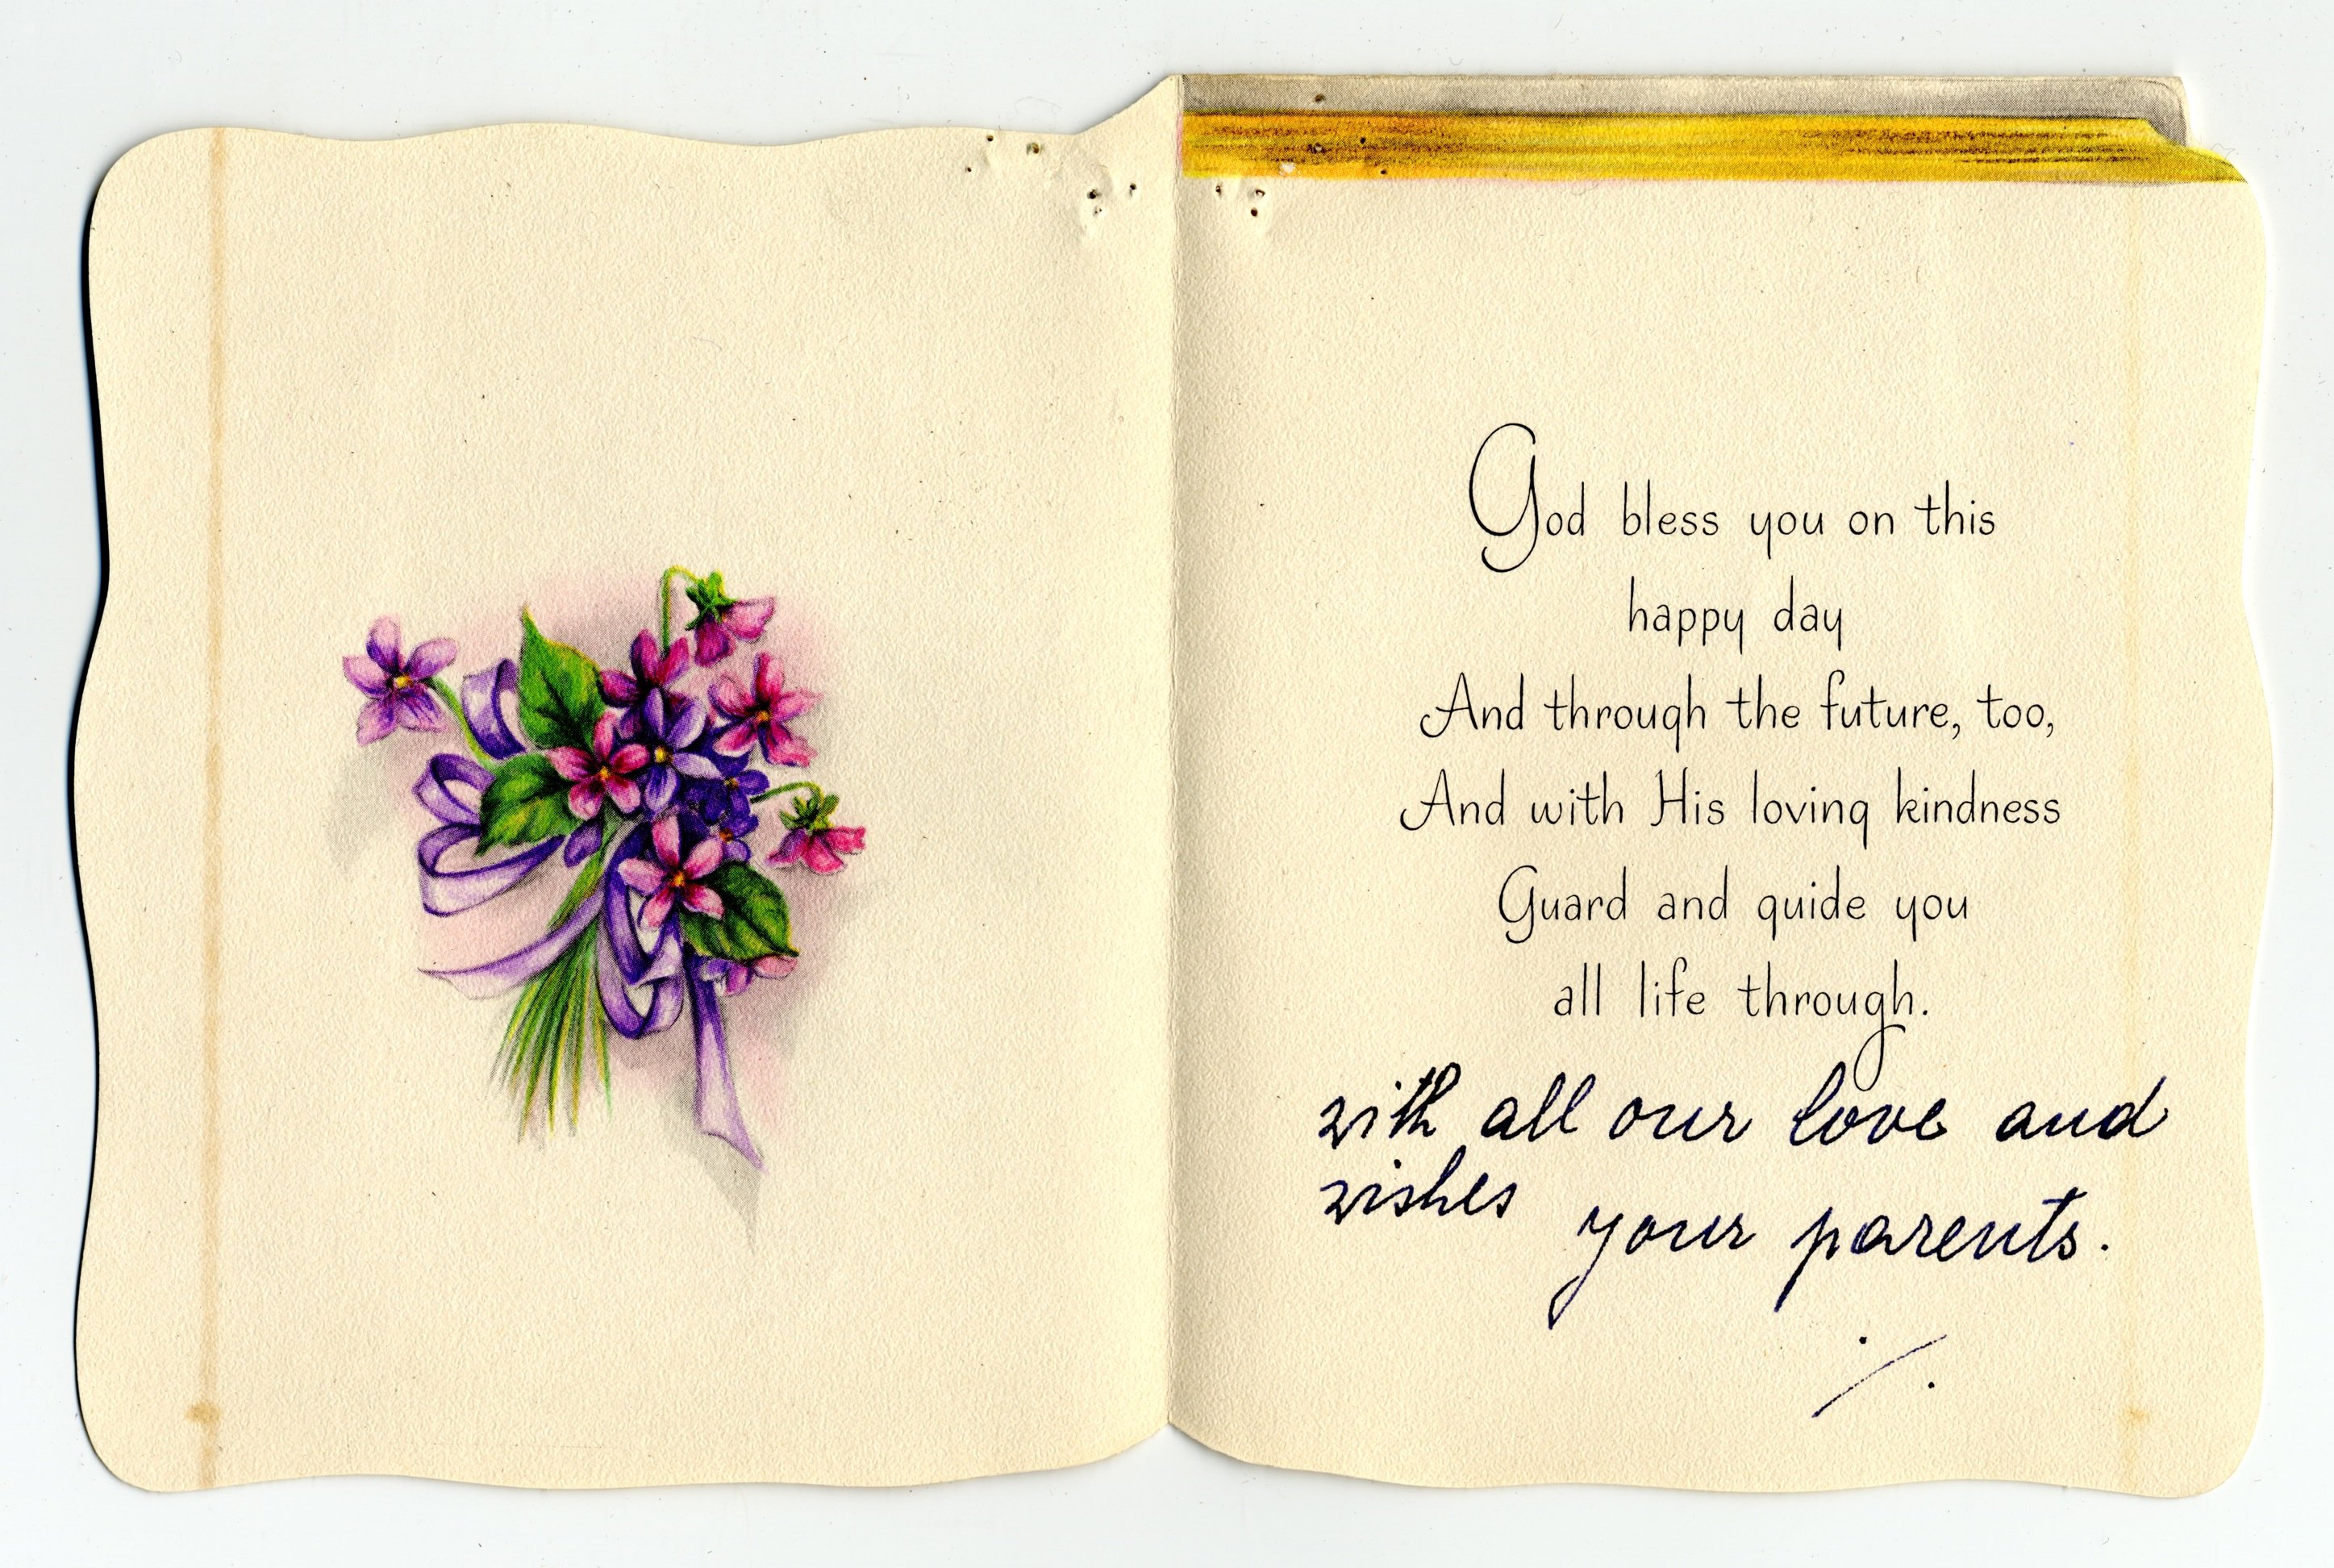 God bless you on this
happy day
And through the future, too,
And with His loving kindness
Guard and guide you
all life through.
with all our love and
wishes
your parents.